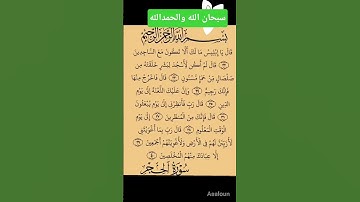 سبحان الله والحمدالله
بسم الله الرحمن الرحيم
قال يا إبليس ما لك ألا تكون مع الساجدين
٣٢ قال لم أكن لأسجد لبشر خلقته من
صلصال من حمإ مسنون ٣٣ قال فاخرج منها
فإنك رجيم ٣٤ وإن عليك اللعنة إلى يوم
الدين ٣٥ قال رب فأنظرني إلى يوم يبعثون
٣٦ قال فإنك من المنظرين ٣٧ إلى يوم
الوقت المعلوم ٣٨ قال رب بما أغويتني
لأزينن لهم في الأرض ولأغوينهم أجمعين ٣٩
إلا عبادك منهم المخلصين ٤٠
سورة الحجر
Asaloun